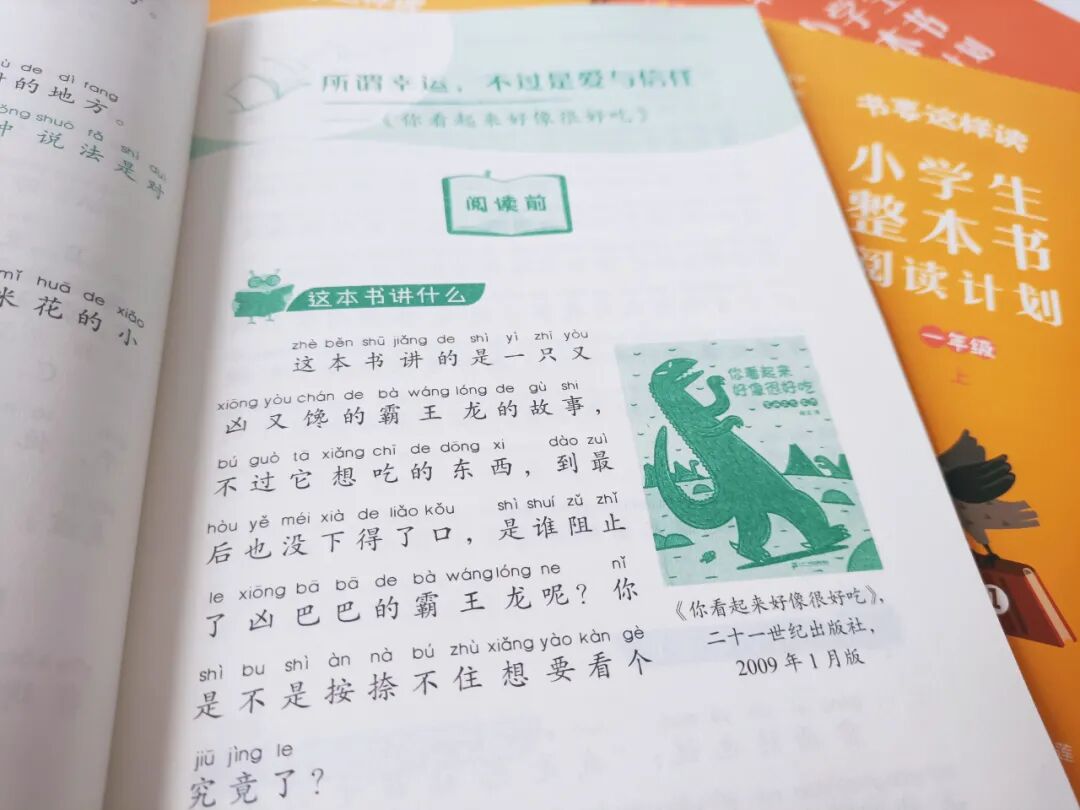 ù de dì fang
的地方。
ōng shuō fǎ shì duì
中说法是对
mǐ huā de xiǎo
米花的小
所谓幸运，不过是爱与信任
——《你看起来好像很好吃》
阅读前
这本书讲什么
zhè běn shū jiǎng de shì yì zhī yòu
这本书讲的是一只又
xiōng yòu chán de bà wáng lóng de gù shi
凶又馋的霸王龙的故事，
bú guò tā xiǎng chī de dōng xi dào zuì
不过它想吃的东西，到最
hòu yě méi xià de liǎo kǒu shì shuí zǔ zhǐ
后也没下得了口，是谁阻止
le xiōng bā bā de bà wáng lóng ne nǐ
了凶巴巴的霸王龙呢？你
shì bu shì àn nà bú zhù xiǎng yào kàn gè
是不是按捺不住想要看个
jiū jìng le
究竟了？
你看起来
好像很好吃
《你看起来好像很好吃》，
二十一世纪出版社，
2009年1月版
书要这样读
小学生
整本书
阅读计划
一年级
上